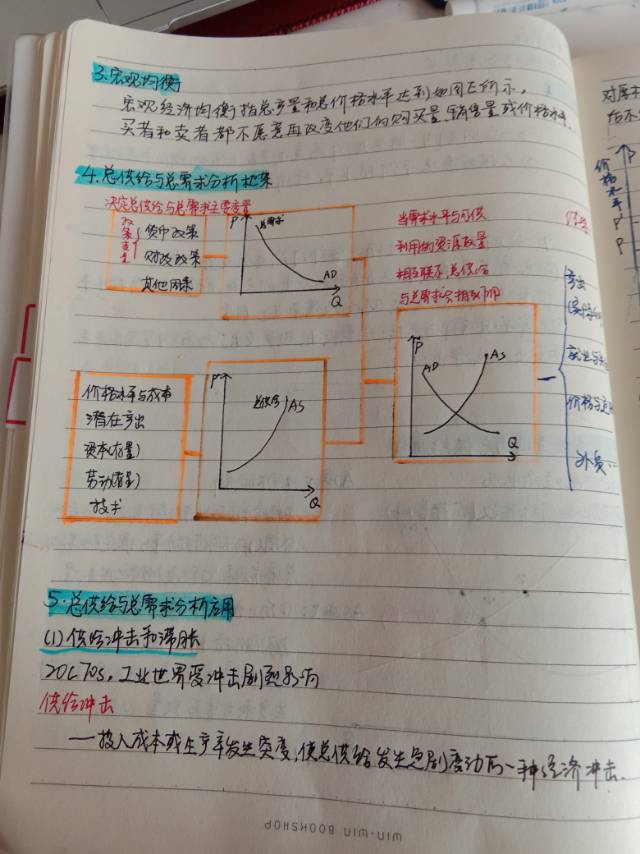 3.宏观均衡
宏观经济均衡指总产量和总价格水平达到如图E所示,
买者和卖者都不愿意再改变他们的购买量、销售量或价格水平.
4.总供给与总需求分析框架
决定总供给与总需求主要变量
政策变量
货币政策
财政政策
其他因素
P
总需求
AD
Q
当需求水平与可供
利用的资源数量
相互联系,总供给
与总需求会相互作用
价格水平与成本
潜在产出
资本(存量)
劳动(存量)
技术
P
总供给
AS
Q
P
AD
AS
Q
产出
就业与
价格与
外贸
5.总供给与总需求分析应用
(1)供给冲击和滞胀
20C70s,工业世界受冲击剧烈影响
供给冲击
—投入成本或生产率发生突变,使总供给发生急剧变动的一种经济冲击.
WIN-WIN BOOKSHOP
价格水平
P
P